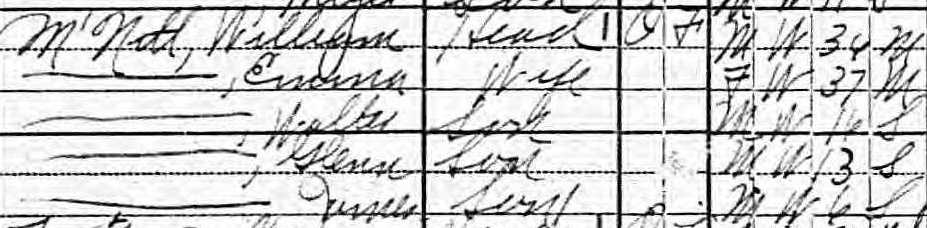 McNott, William Head 1 O F M W 34 M
——, Emma Wife F W 37 M
——, Walter Son M W 16 S
——, Glenn Son M W 13 S
—— James Son M W 6 S